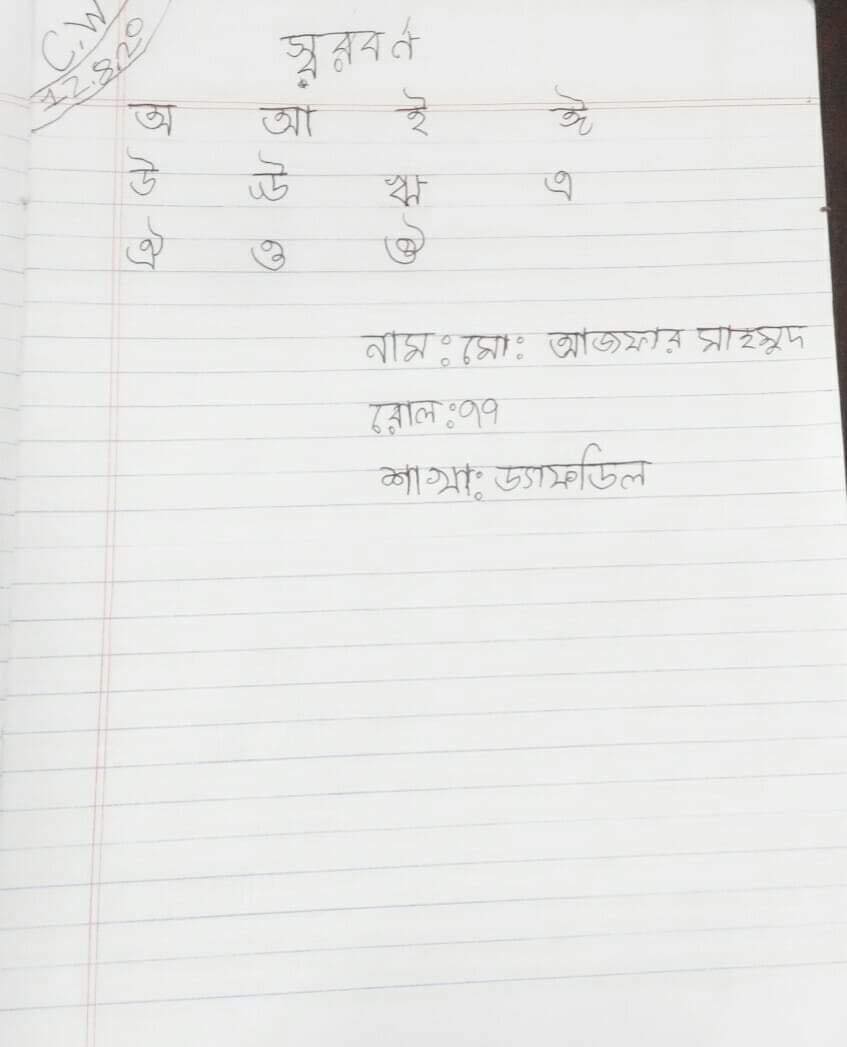 C.W
12.8.20
স্বরবর্ন
অ আ ই ঈ
উ ঊ ঋ এ
ঐ ও ঔ
নাম: মো: আজফার মাহমুদ
রোল: ৭৭
শাখা: ড্যাফডিল